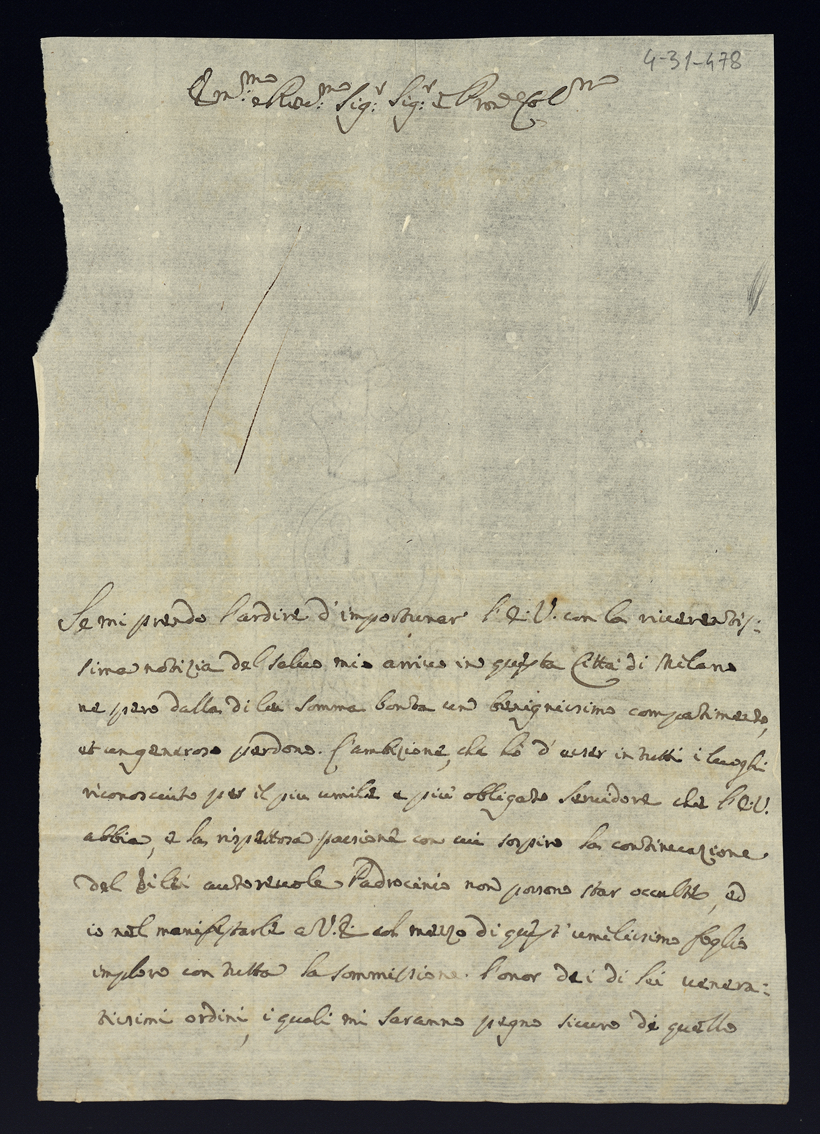 4-31-478
Em:mo e Rev:mo Sig:r Sig:r e Pron Col:mo
Se mi prendo l'ardire d'importunar l'E.V. con la riverentis:
sima notizia del salvo mio arrivo in questa Città di Milano
ne spero dalla di lei somma bontà un benignissimo compatimento,
et un generoso perdono. L'ambizione, che hò d'esser in tutti i luoghi
riconosciuto per il più umile e più obligato servidore che l'E.V.
abbia, e la rispettosa passione con cui sospiro la continuazione
del di lei autorevole Padrocinio non possono star occulte, ed
io nel manifestarle a V.E. col mezzo di quest'umilissimo foglio
imploro con tutta la sommissione l'onor dei di lei venera:
tissimi ordini, i quali mi saranno pegno sicuro di quello